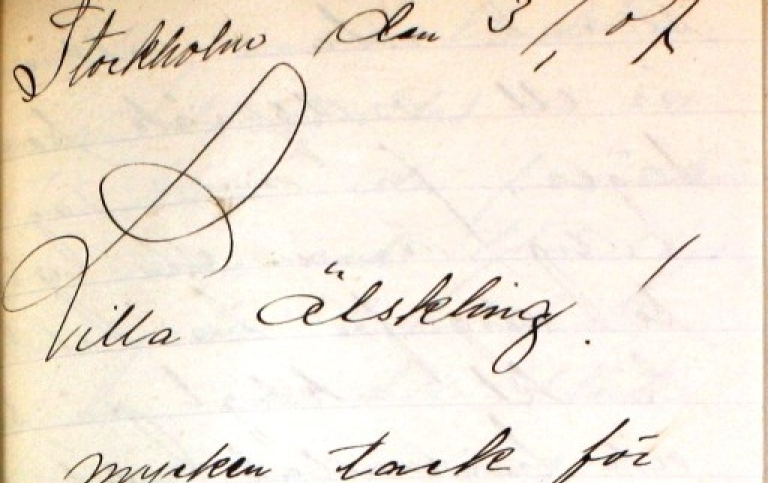 Stockholm den 3/1 07
Lilla älskling!
mycken tack för